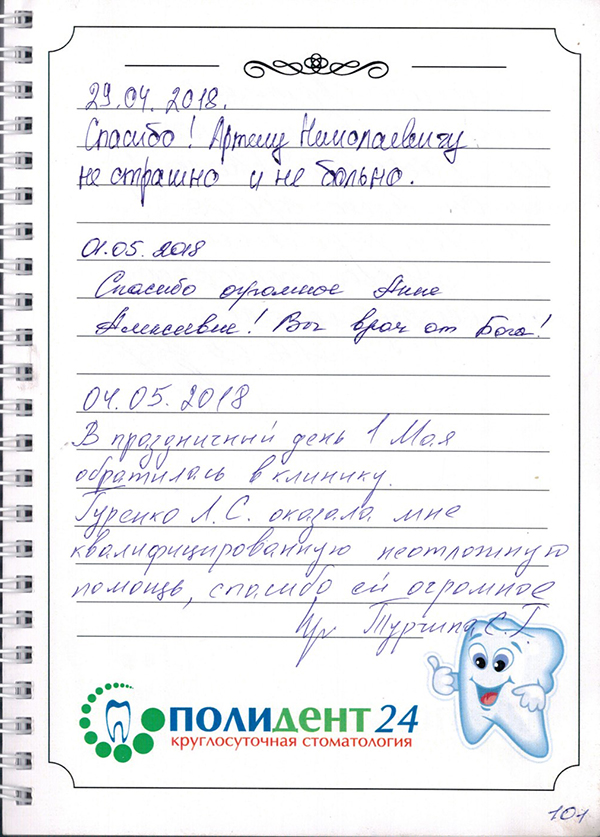 29.04.2018.
Спасибо! Артему Николаевичу
не страшно и не больно.
01.05.2018
Спасибо огромное Анне
Алексеевне! Вы врач от Бога!
04.05.2018
В праздничный день 1 Мая
обратилась в клинику.
Гуренко Л.С. оказала мне
квалифицированную неотложную
помощь, спасибо ей огромное
Турчина С.Г.
ПОЛИДЕНТ 24
круглосуточная стоматология
101